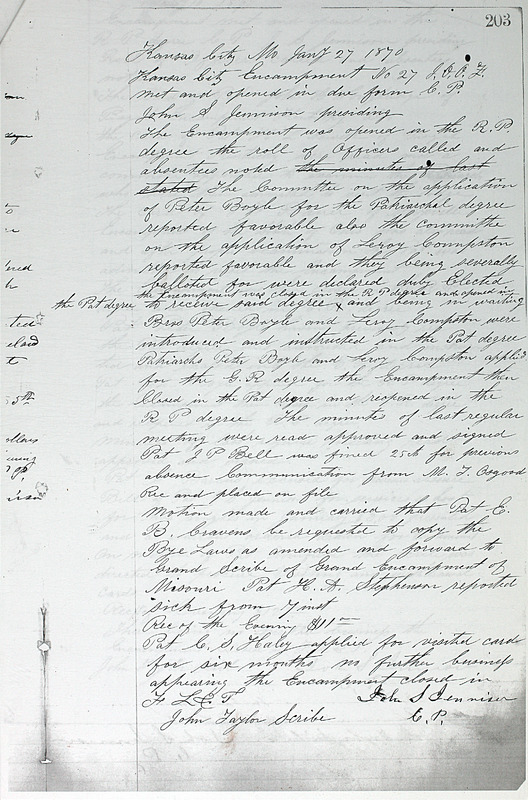 203
Kansas City Mo Jany 27 1870
Kansas City Encampment No 27 I.O.O.F.
met and opened in due form C. P.
John S Jennison presiding
The Encampment was opened in the R. P.
degree the roll of Officers called and
absentees noted the minutes of last
stated The Committe on the application
of Peter Boyle for the Patriarchal degree
reported favorable also the committe
on the application of Leroy Compston
reported favorable and they being severally
balloted for were declared duly Elected
the Encampment was closed in the R. P degree and opened in
the Pat degree to receive said degree x and being in waiting
Bros Peter Boyle and Leroy Compston were
introduced and instructed in the Pat degree
Patriarchs Peter Boyle and Leroy Compston applied
for the G. R degree the Encampment then
Closed in the Pat degree and reopened in the
R P degree The minutes of last regular
meeting were read approved and signed
Pat J P Bell was fined 25cts for previous
absence Communication from M. T. Osgood
Rec and placed on file
Motion made and carried that Pat E.
B. Cravens be requested to copy the
Bye Laws as amended and forward to
Grand Scribe of Grand Encampment of
Missouri Pat H. A. Stephenson reported
sick from 7 inst
Rec of the Evening $11—
Pat C. S. Haley applied for visited card
for six months no further business
appearing the Encampment closed in
F L & T John S Jennison
John Taylor Scribe C. P.